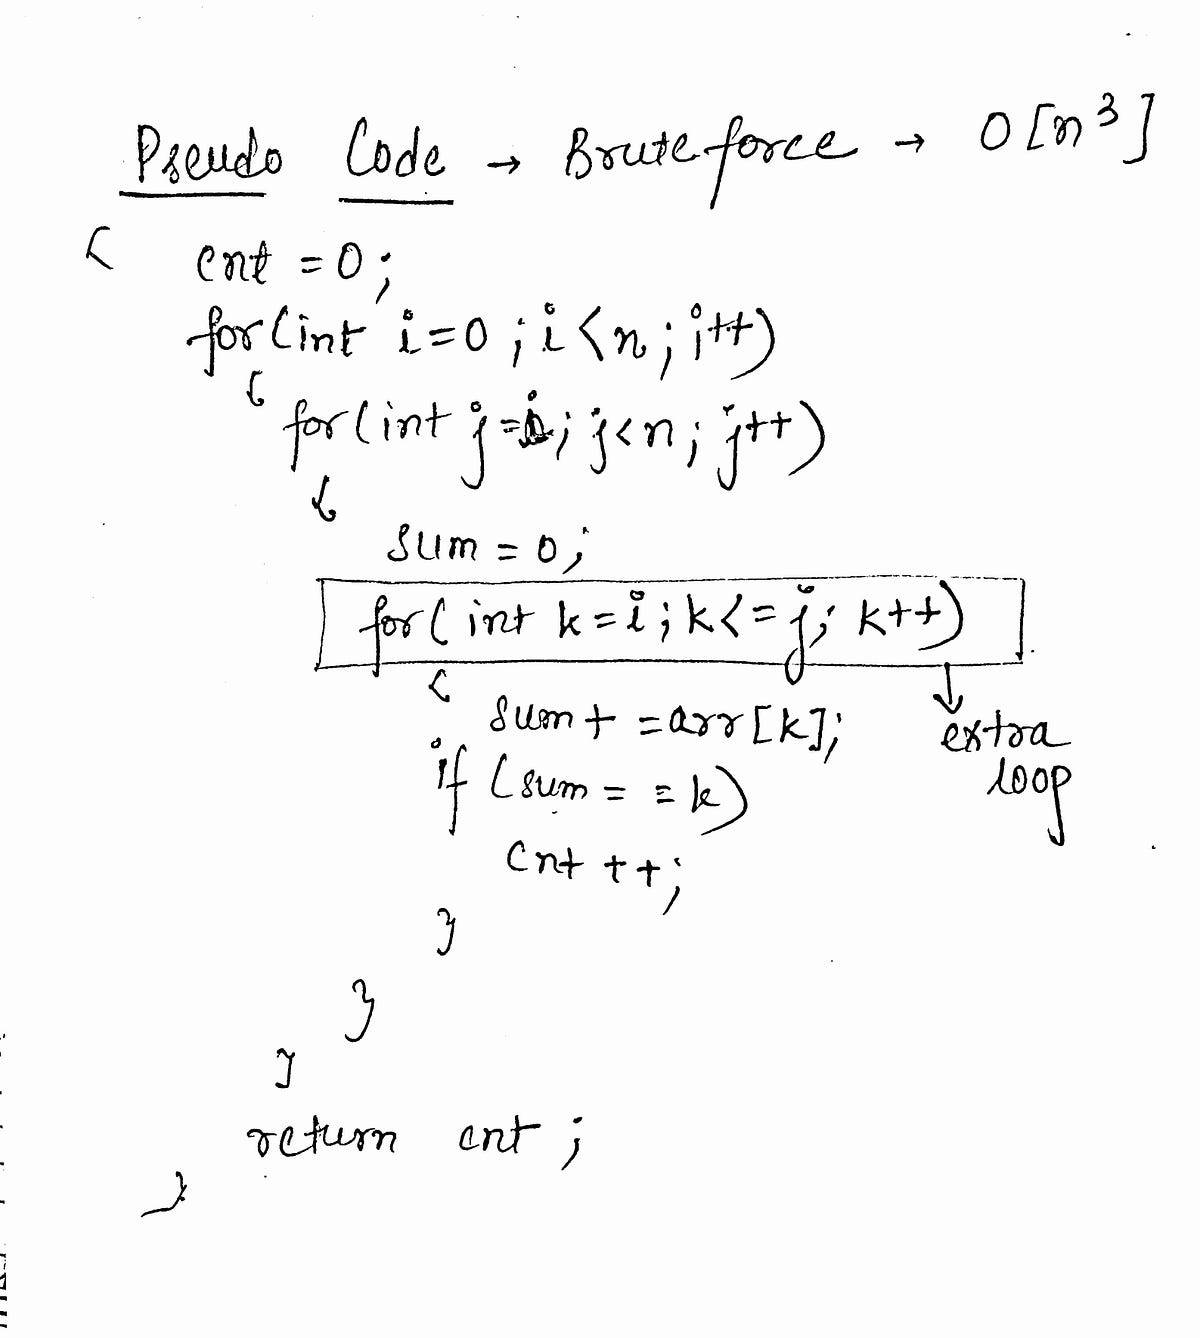 Pseudo Code → Bruteforce → O[n³]
{ cnt = 0;
for(int i=0; i<n; i++)
{
for(int j=i; j<n; j++)
{
sum = 0;
for( int k=i; k<=j; k++)
{
sum+ =arr[k];
if (sum = = k)
cnt ++;
↓
extra
loop
}
}
}
return cnt;
}